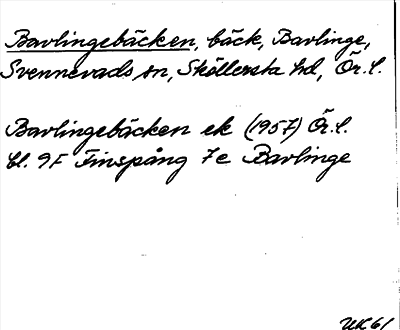 Bavlingebäcken, bäck, Bavlinge,
Svennevads sn, Sköllersta hd, Ör. l.
Bavlingebäcken ek (1957) Ör. l.
bl. 9F Finspång 7e Bavlinge
UK61